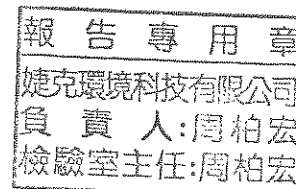 報告專用章
婕克環境科技有限公司
負責人:周柏宏
檢驗室主任:周柏宏